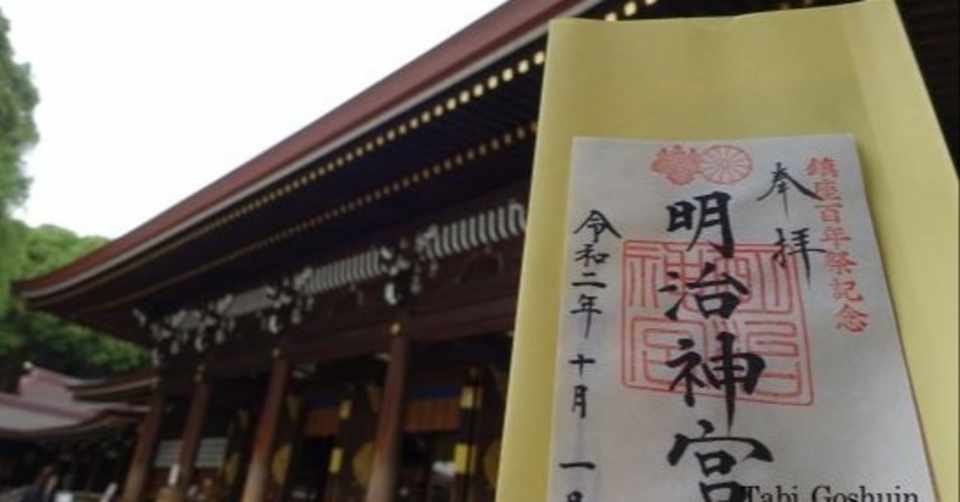 鎮座百年祭記念
奉拝
明治神宮
令和二年十月一日
Tabi Goshuin